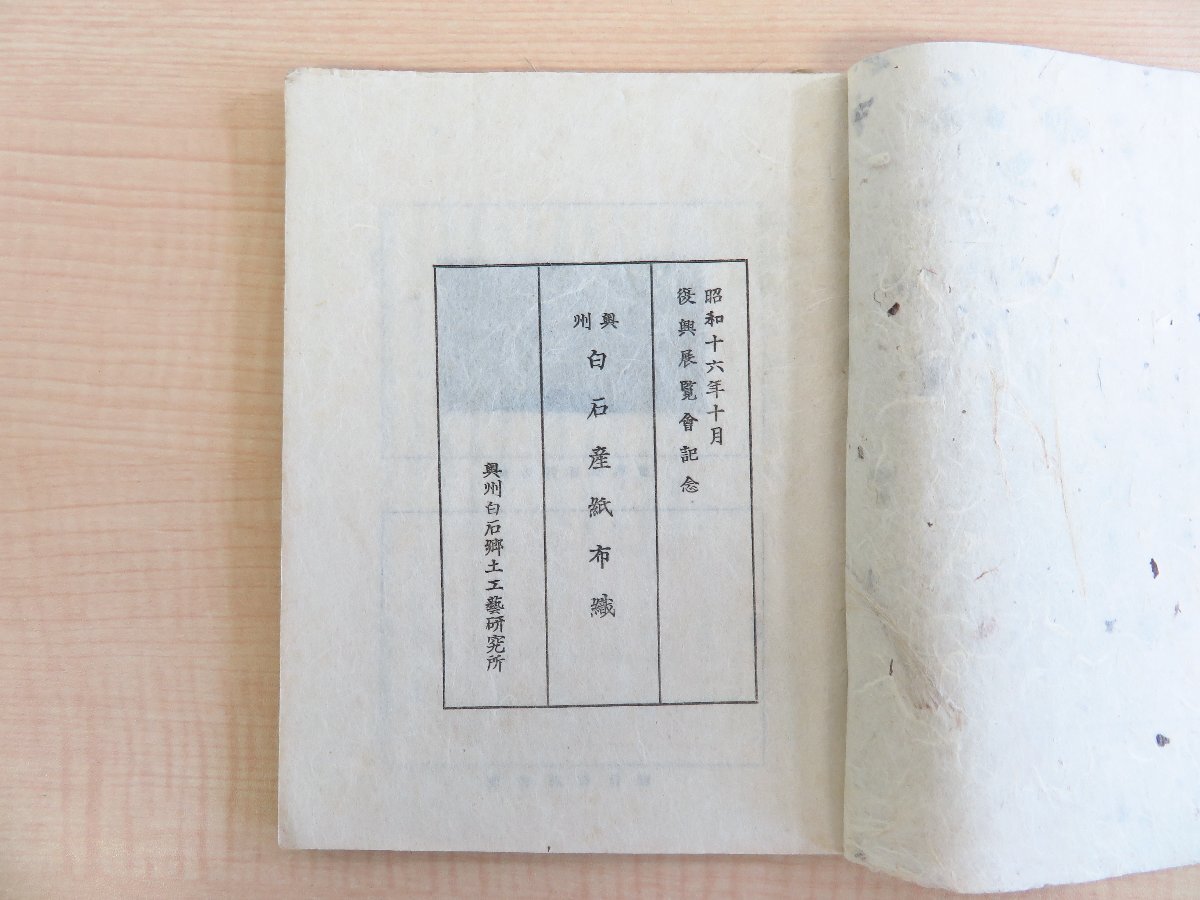 昭和十六年十月
復興展覧會記念
奥州
白石産紙布織
奥州白石郷土工藝研究所